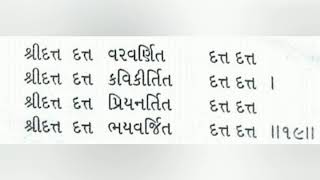 શ્રીદત્ત દત્ત વરવર્ણિત દત્ત દત્ત
શ્રીદત્ત દત્ત કવિકીર્તિત દત્ત દત્ત ।
શ્રીદત્ત દત્ત પ્રિયનર્તિત દત્ત દત્ત
શ્રીદત્ત દત્ત ભયવર્જિત દત્ત દત્ત ॥૧૯॥